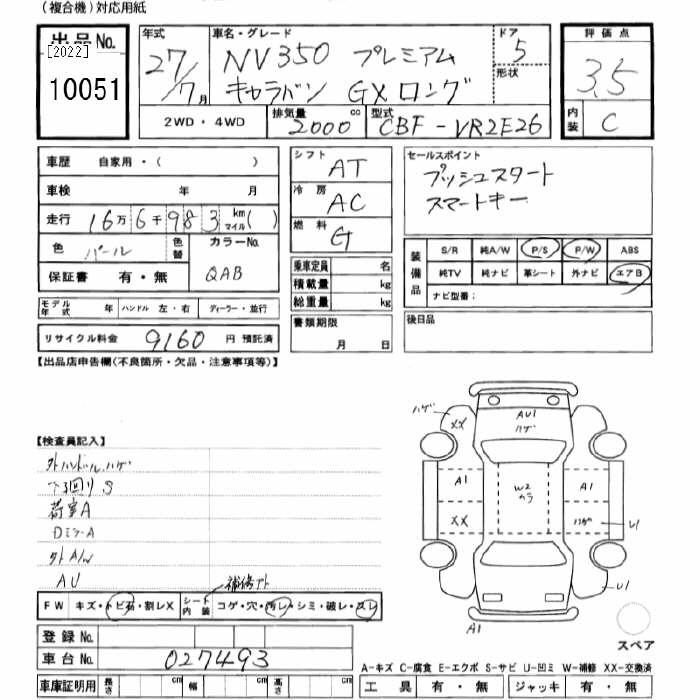 (複合機)対応用紙
出品No.
[2022]
10051
年式
27/7月
車名・グレード
NV350 プレミアム
キャラバン GXロング
ドア
5
形状
評価点
3.5
内装
C
2WD・4WD
排気量
2000cc
型式
CBF-VR2E26
車歴 自家用・( )
車検 年 月
走行 16万6千983 km マイル( )
色 パール
色替
カラーNo.
QAB
保証書 有・無
モデル年式 年 ハンドル 左・右 ディーラー・並行
リサイクル料金 9160 円 預託済
シフト AT
冷房 AC
燃料 G
乗車定員 名
積載量 kg
総重量 kg
書類期限
月 日
セールスポイント
プッシュスタート
スマートキー
装備品
S/R 純A/W P/S P/W ABS
純TV 純ナビ 革シート 外ナビ エアB
ナビ型番:
後日品
【出品店申告欄(不良箇所・欠品・注意事項等)】
【検査員記入】
外ハンドル ハゲ
下回り S
荷室A
DミラーA
外A/W
AU
補修アト
FW キズ・トビ石・割レX シート内装 コゲ・穴・汚レ・シミ・破レ・スレ
登録No.
車台No. 027493
車庫証明用 長さ cm 幅 cm 高さ cm
ハゲ
XX
AU1
ハゲ
A1
W2
カラ
A1
XX
ハゲ
U1
U1
A1
スペア
A-キズ C-腐食 E-エクボ S-サビ U-凹ミ W-補修 XX-交換済
工具 有・無 ジャッキ 有・無